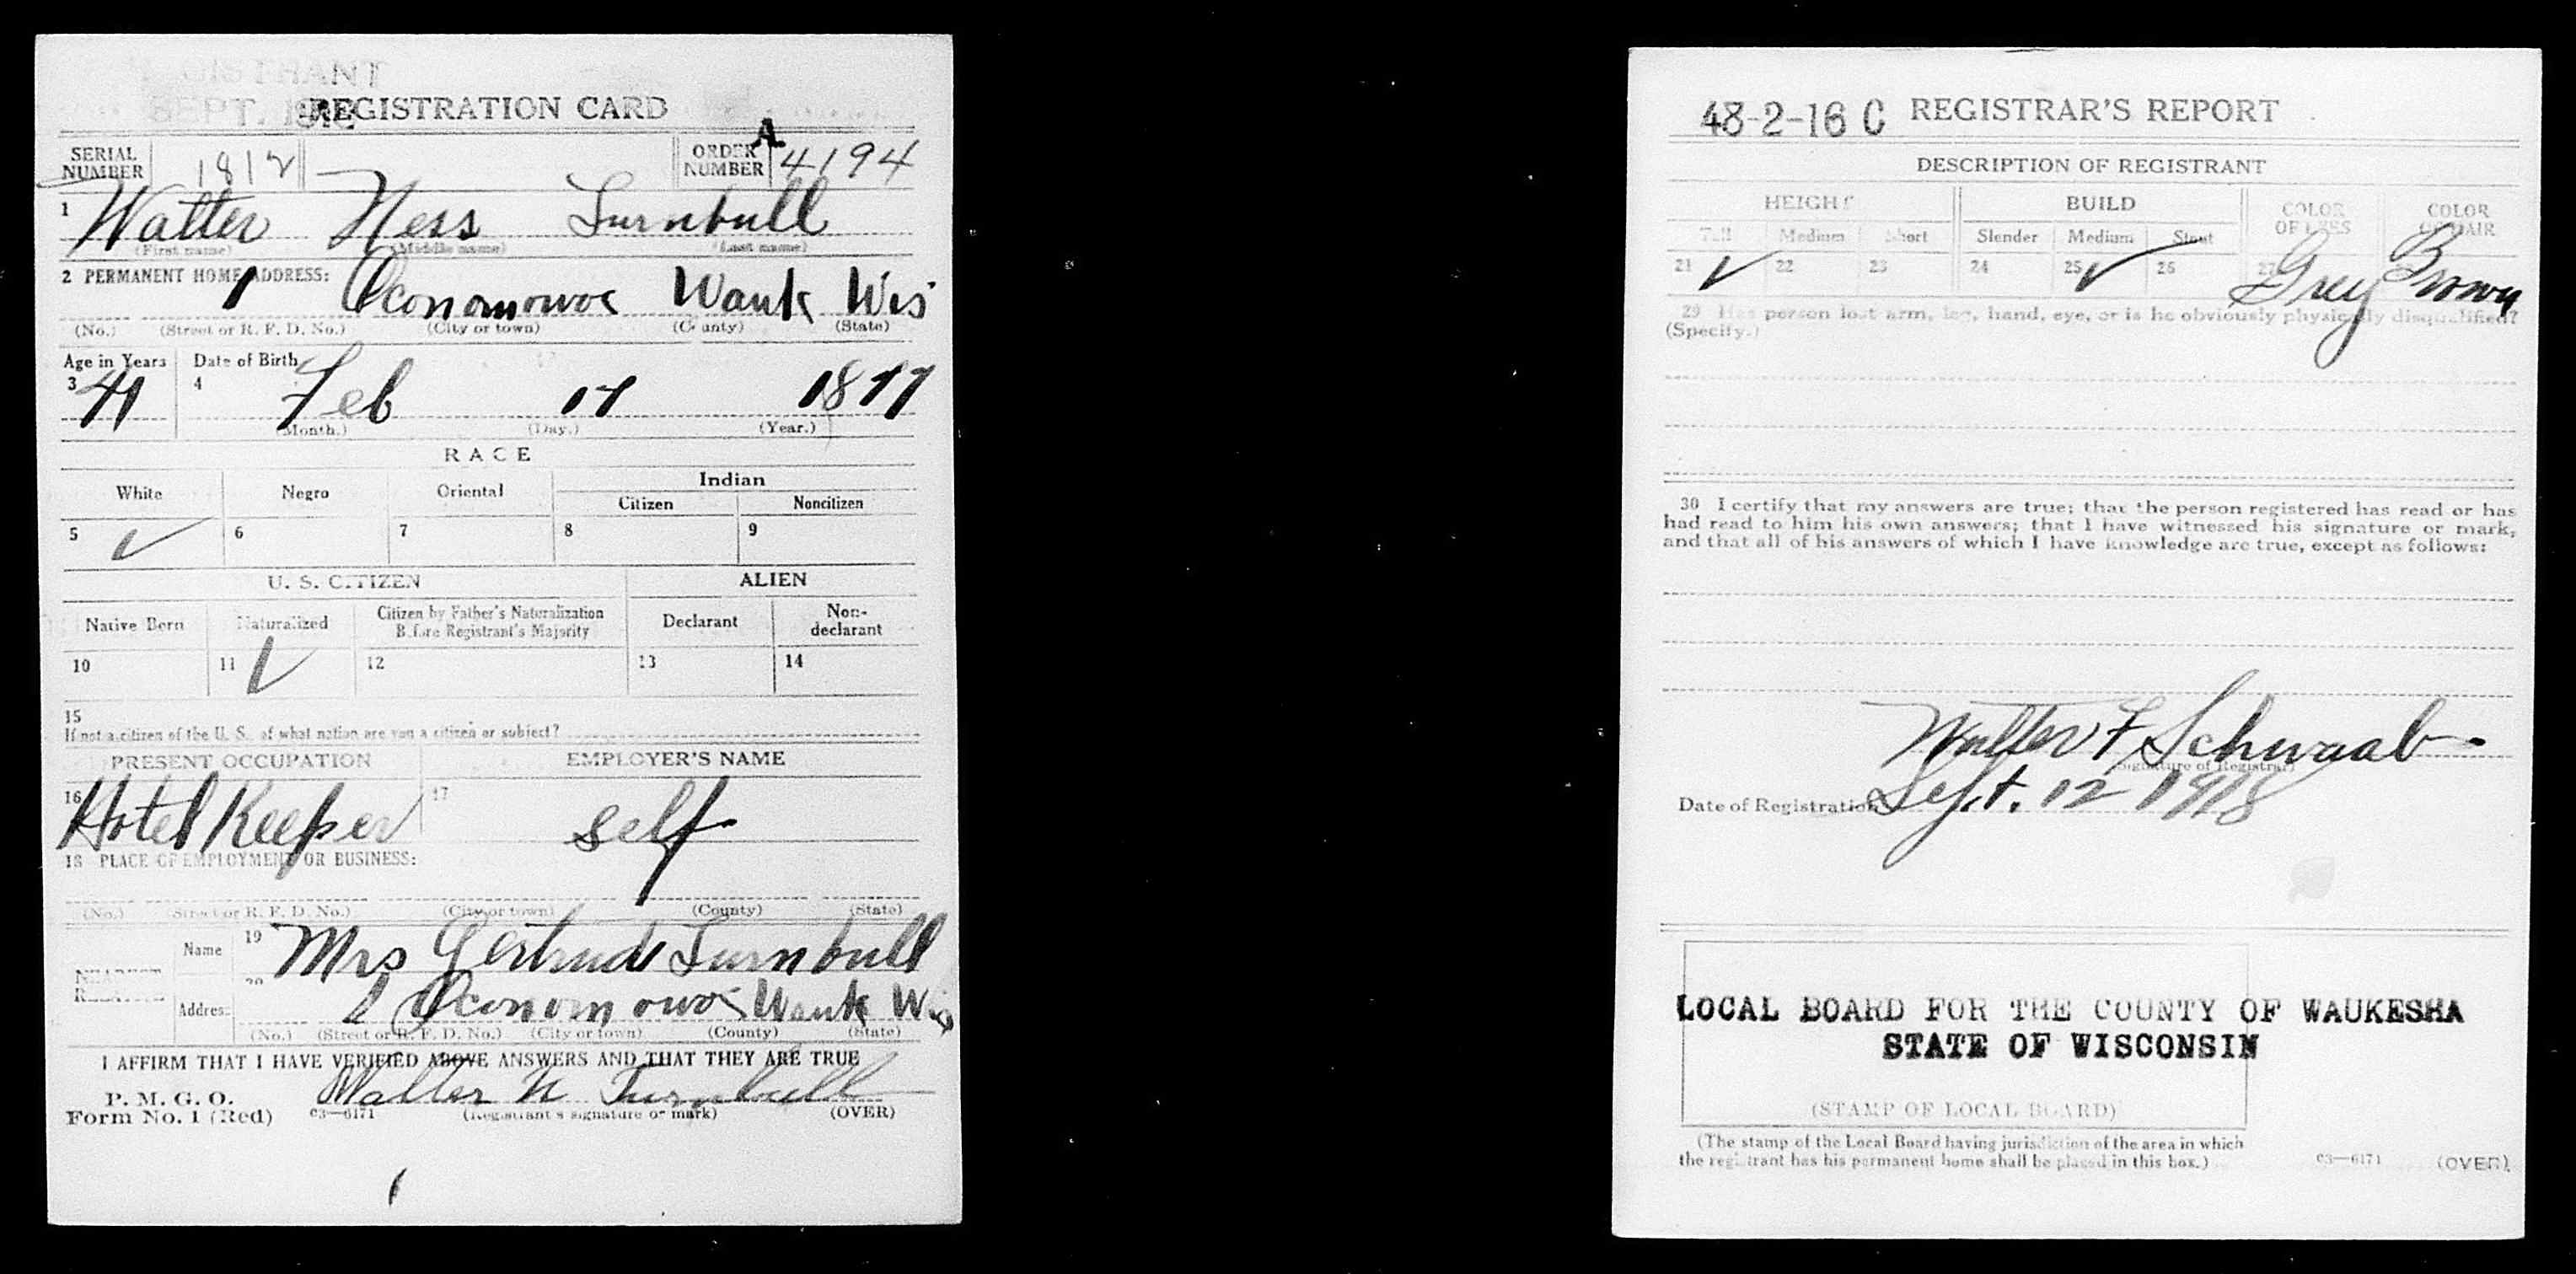 REGISTRANT
SEPT. 1918
REGISTRATION CARD
SERIAL NUMBER 1812 ORDER NUMBER A 4194
1 Walter Ness Turnbull
(First name) (Middle name) (Last name)
2 PERMANENT HOME ADDRESS: 1 Oconomowoc Wauk Wis
(No.) (Street or R. F. D. No.) (City or town) (County) (State)
Age in Years Date of Birth
3 41 4 Feb 17 1877
(Month.) (Day.) (Year.)
RACE
White Negro Oriental Indian
Citizen Noncitizen
5 ✓ 6 7 8 9
U. S. CITIZEN ALIEN
Native Born Naturalized Citizen by Father's Naturalization Before Registrant's Majority Declarant Non-declarant
10 11 ✓ 12 13 14
15
If not a citizen of the U. S., of what nation are you a citizen or subject?
PRESENT OCCUPATION EMPLOYER'S NAME
16 Hotel Keeper 17 self
18 PLACE OF EMPLOYMENT OR BUSINESS:
(No.) (Street or R. F. D. No.) (City or town) (County) (State)
NEAREST RELATIVE
Name 19 Mrs Gertrude Turnbull
Address 20 Oconomowoc Wauk Wis
(No.) (Street or R. F. D. No.) (City or town) (County) (State)
I AFFIRM THAT I HAVE VERIFIED ABOVE ANSWERS AND THAT THEY ARE TRUE
P. M. G. O.
Form No. 1 (Red) c3—6171 Walter N Turnbull
(Registrant's signature or mark) (OVER)
48-2-16 C REGISTRAR'S REPORT
DESCRIPTION OF REGISTRANT
HEIGHT BUILD COLOR OF EYES COLOR OF HAIR
Tall Medium Short Slender Medium Stout
21 ✓ 22 23 24 25 ✓ 26 27 Grey Brown
29 Has person lost arm, leg, hand, eye, or is he obviously physically disqualified?
(Specify.)
30 I certify that my answers are true; that the person registered has read or has
had read to him his own answers; that I have witnessed his signature or mark,
and that all of his answers of which I have knowledge are true, except as follows:
Walter F Schwaab
(Signature of Registrar)
Date of Registration Sept. 12 1918
LOCAL BOARD FOR THE COUNTY OF WAUKESHA
STATE OF WISCONSIN
(STAMP OF LOCAL BOARD)
(The stamp of the Local Board having jurisdiction of the area in which
the registrant has his permanent home shall be placed in this box.)
c3—6171 (OVER)